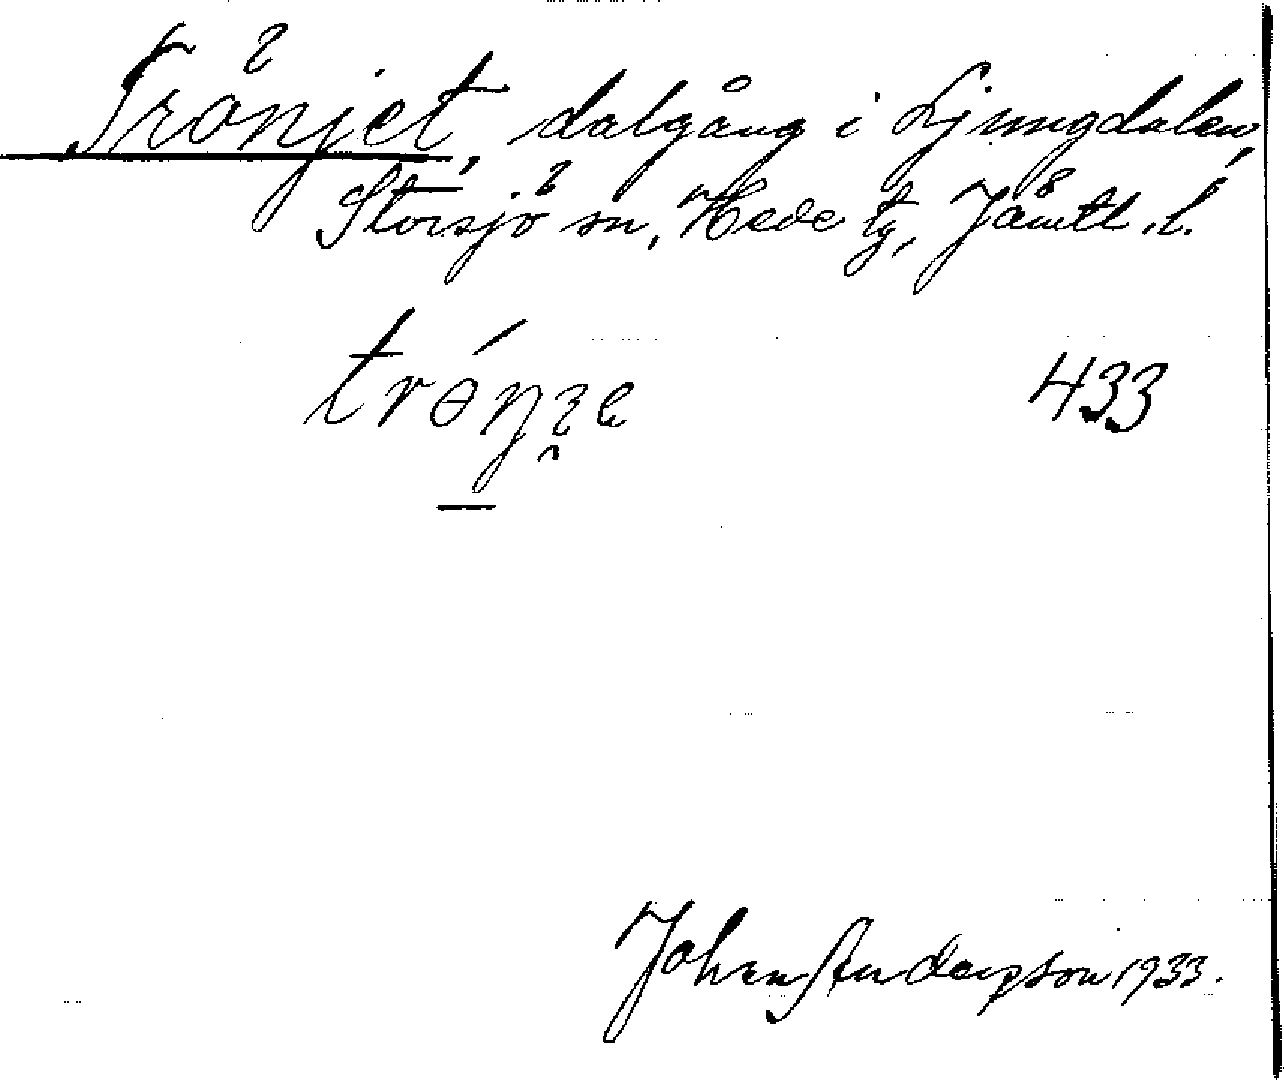 Trönjet, dalgång i Ljungdalen,
Storsjö sn, Hede tg, Jämtl. l.
433
Johan Andersson 1933.